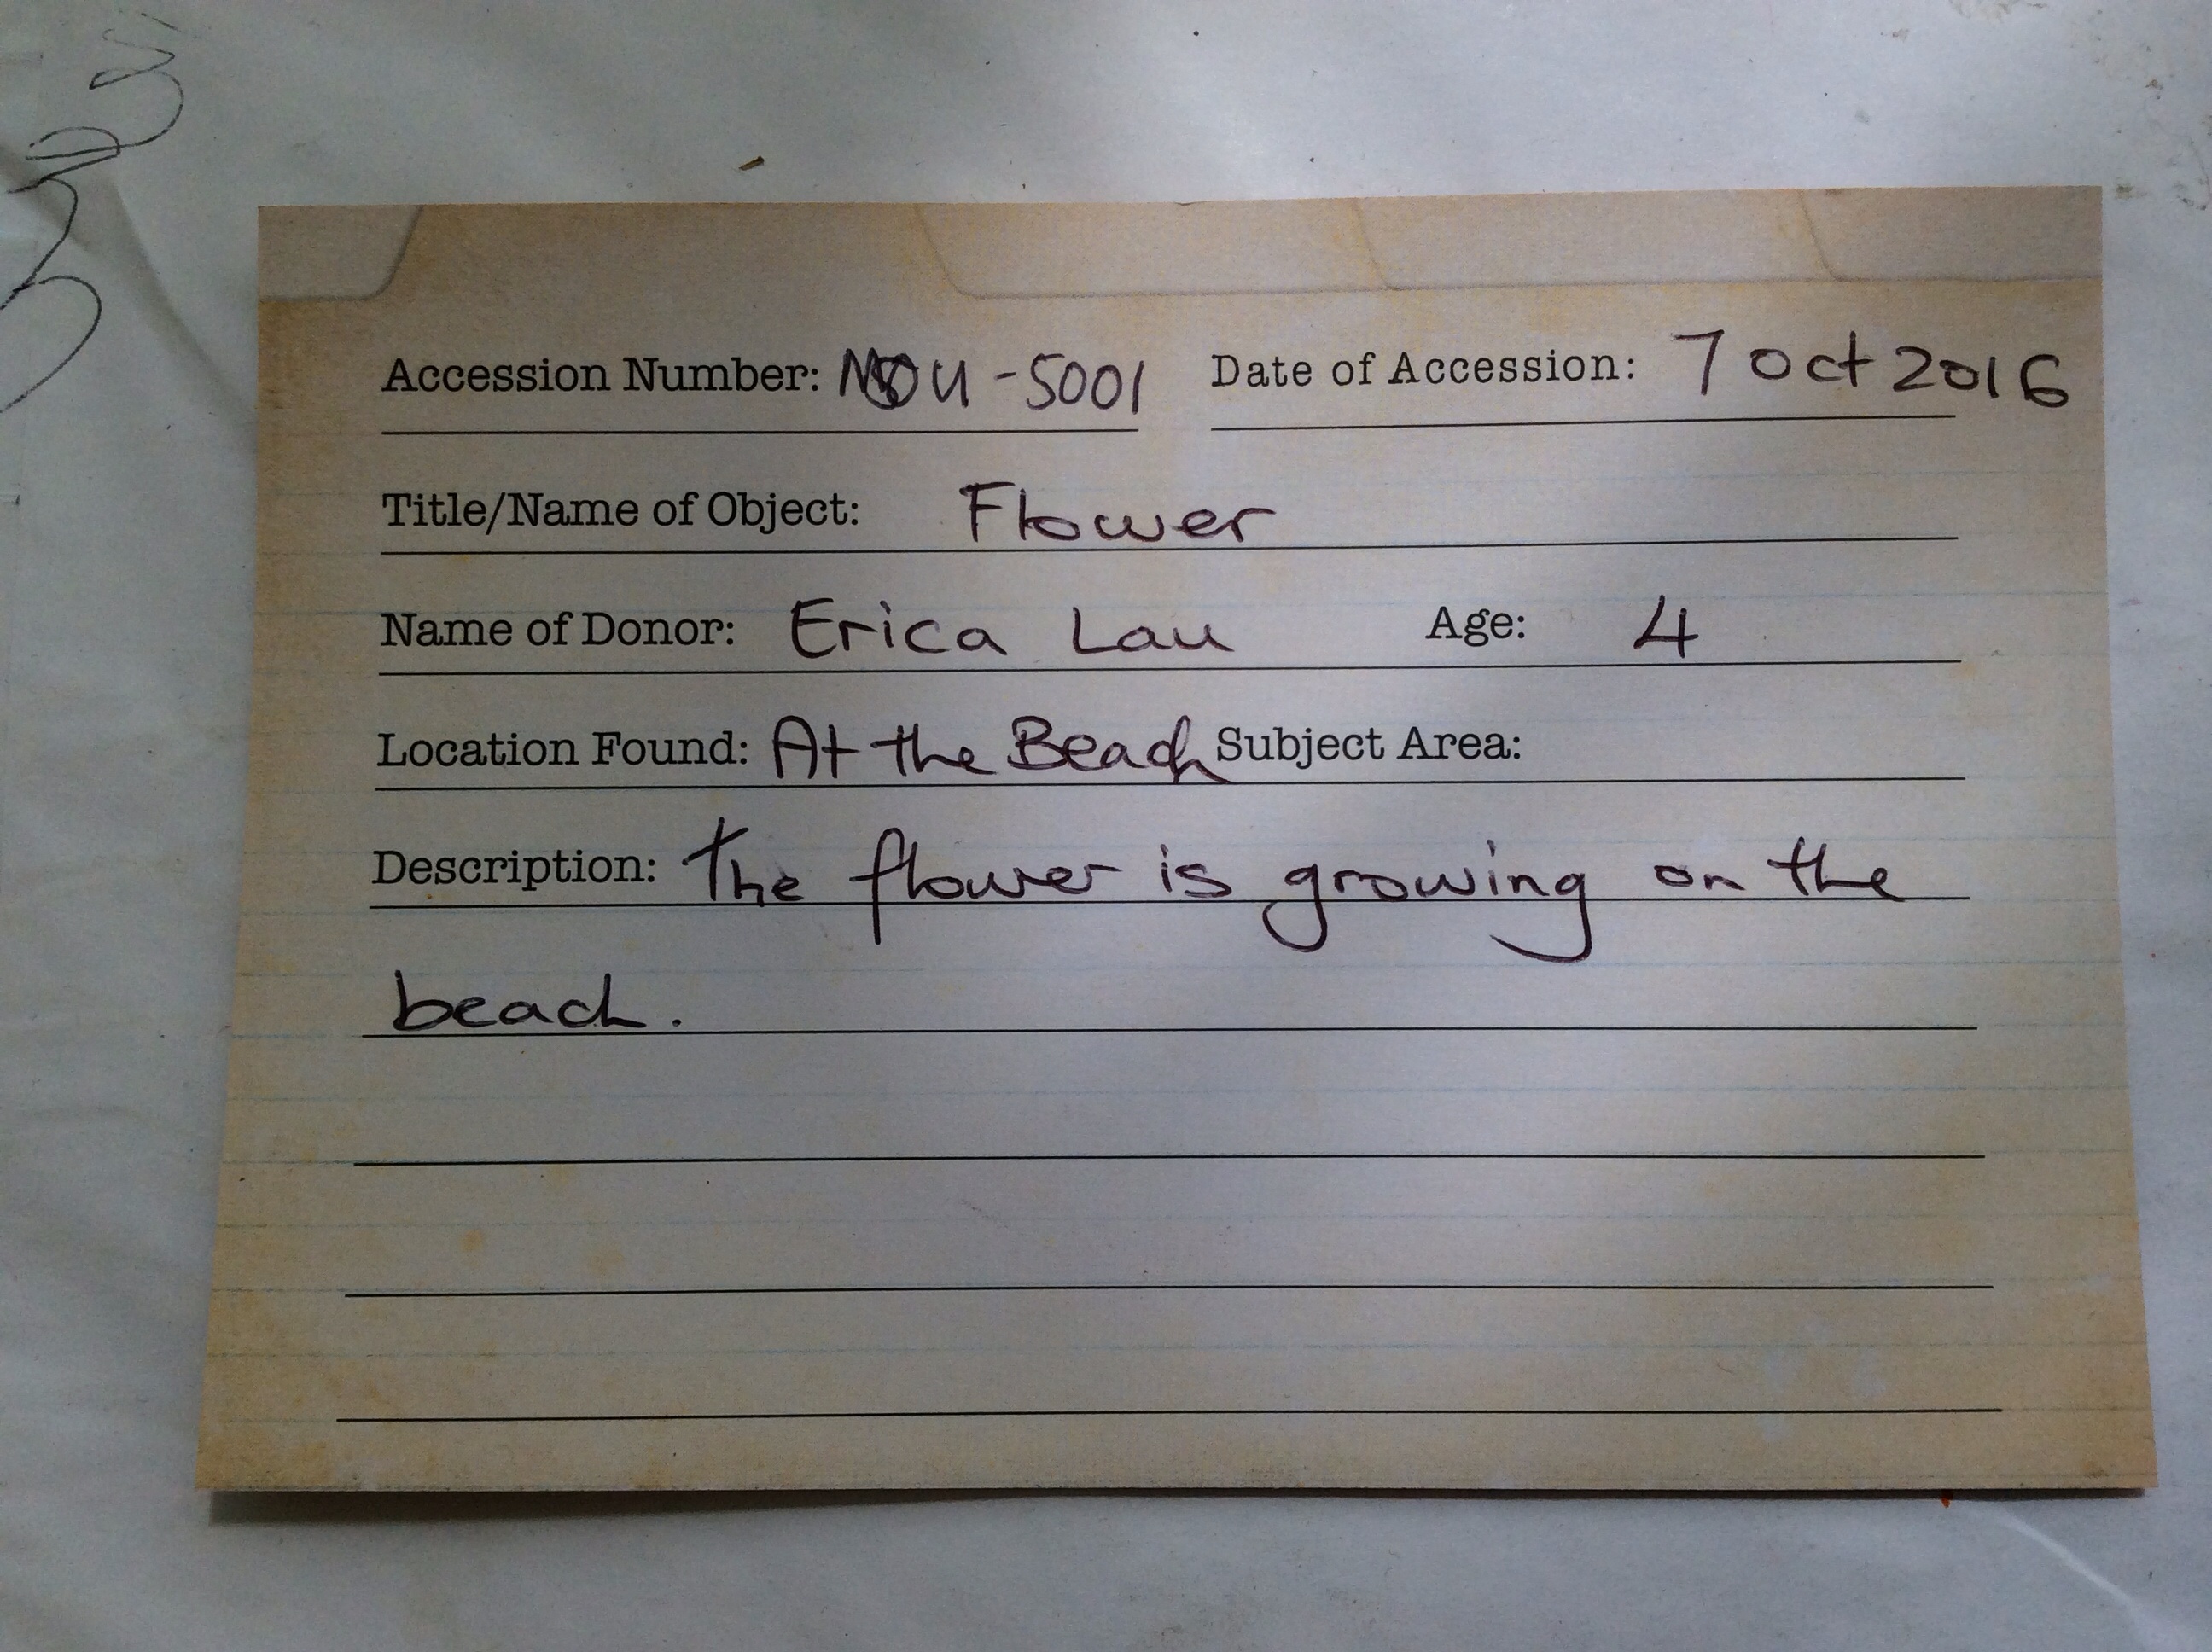 Accession Number: MOU-5001 Date of Accession: 7 Oct 2016
Title/Name of Object: Flower
Name of Donor: Erica Lau Age: 4
Location Found: At the Beach Subject Area:
Description: The flower is growing on the
beach.